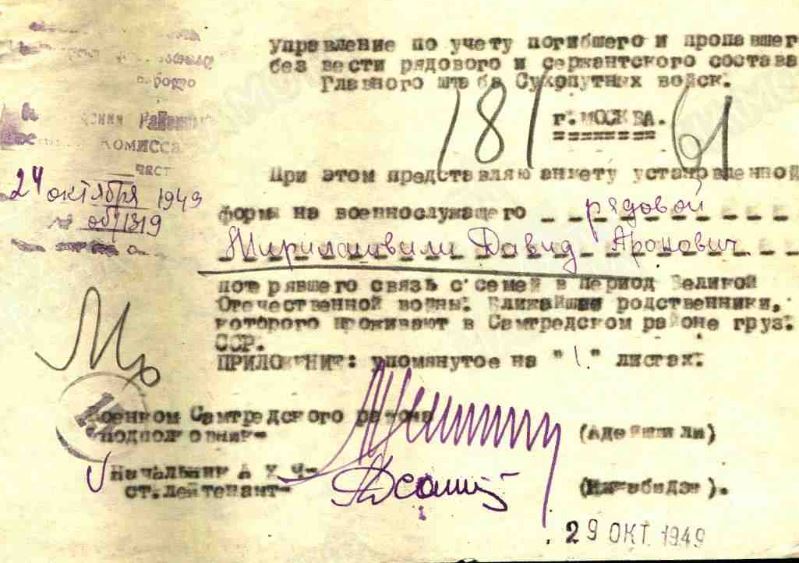 Управление по учету погибшего и пропавшег
без вести рядового и сержантского состава
Главного штаба Сухопутных войск.
г. МОСКВА.
181 61
КОМИССА
част
24 октября 1949
№ об/1319
При этом представляю анкету установленной
формы на военнослужащего рядовой
Мирилашвили Давид Аронович
потерявшего связь с семьей в период Великой
Отечественной войны. Ближайшие родственники,
которого проживают в Самтредском районе груз.
ССР.
ПРИЛОЖЕНИЕ: упомянутое на "1." листах.
Военком Самтредского района
подполковник-
(Адейшвили)
Начальник А Х Ч-
ст.лейтенант-
29 ОКТ 1949